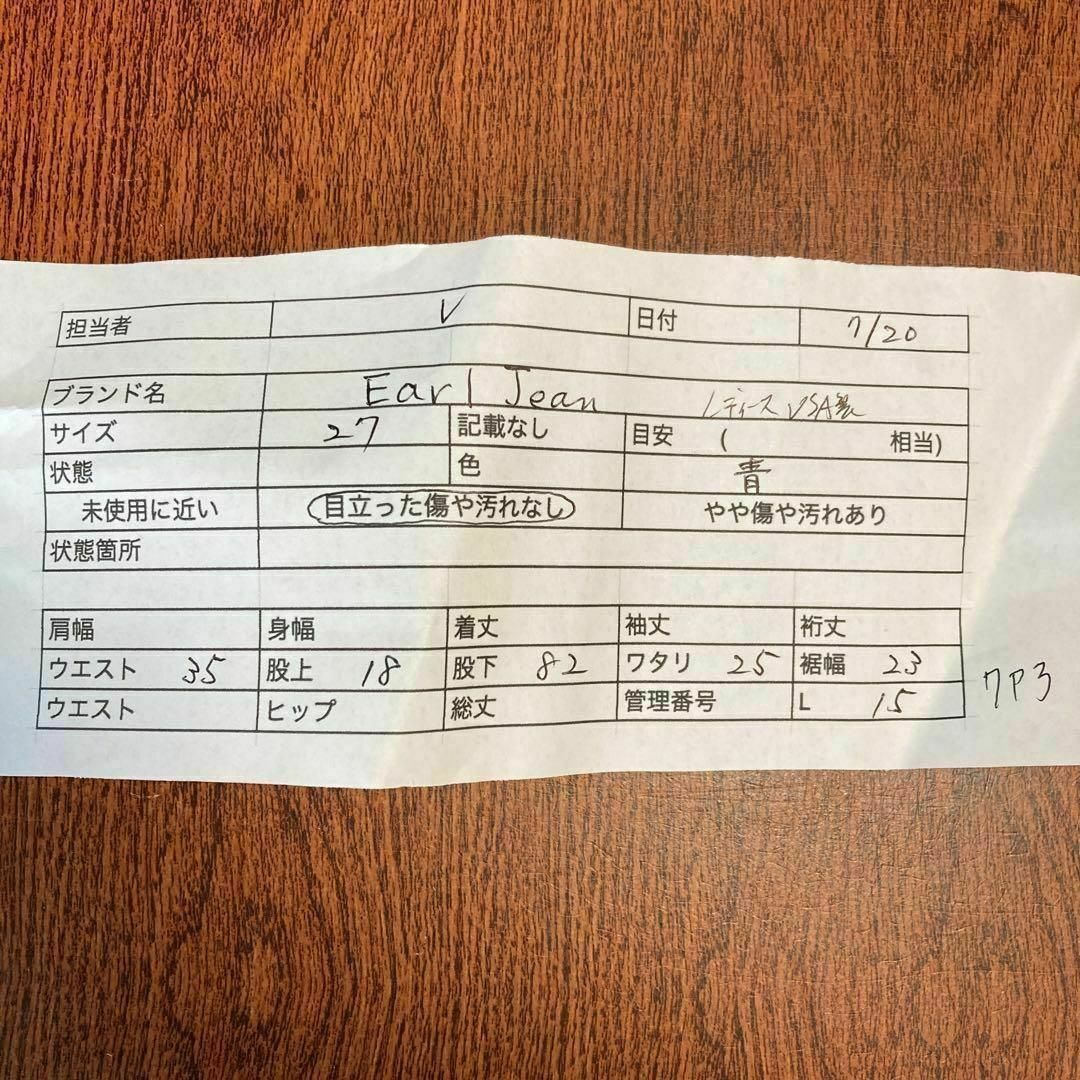 担当者 V 日付 7/20
ブランド名 Earl Jean レディース USA製
サイズ 27 記載なし 目安 ( 相当)
状態 色 青
未使用に近い 目立った傷や汚れなし やや傷や汚れあり
状態箇所
肩幅 身幅 着丈 袖丈 裄丈
ウエスト 35 股上 18 股下 82 ワタリ 25 裾幅 23
ウエスト ヒップ 総丈 管理番号 L 15
7P3